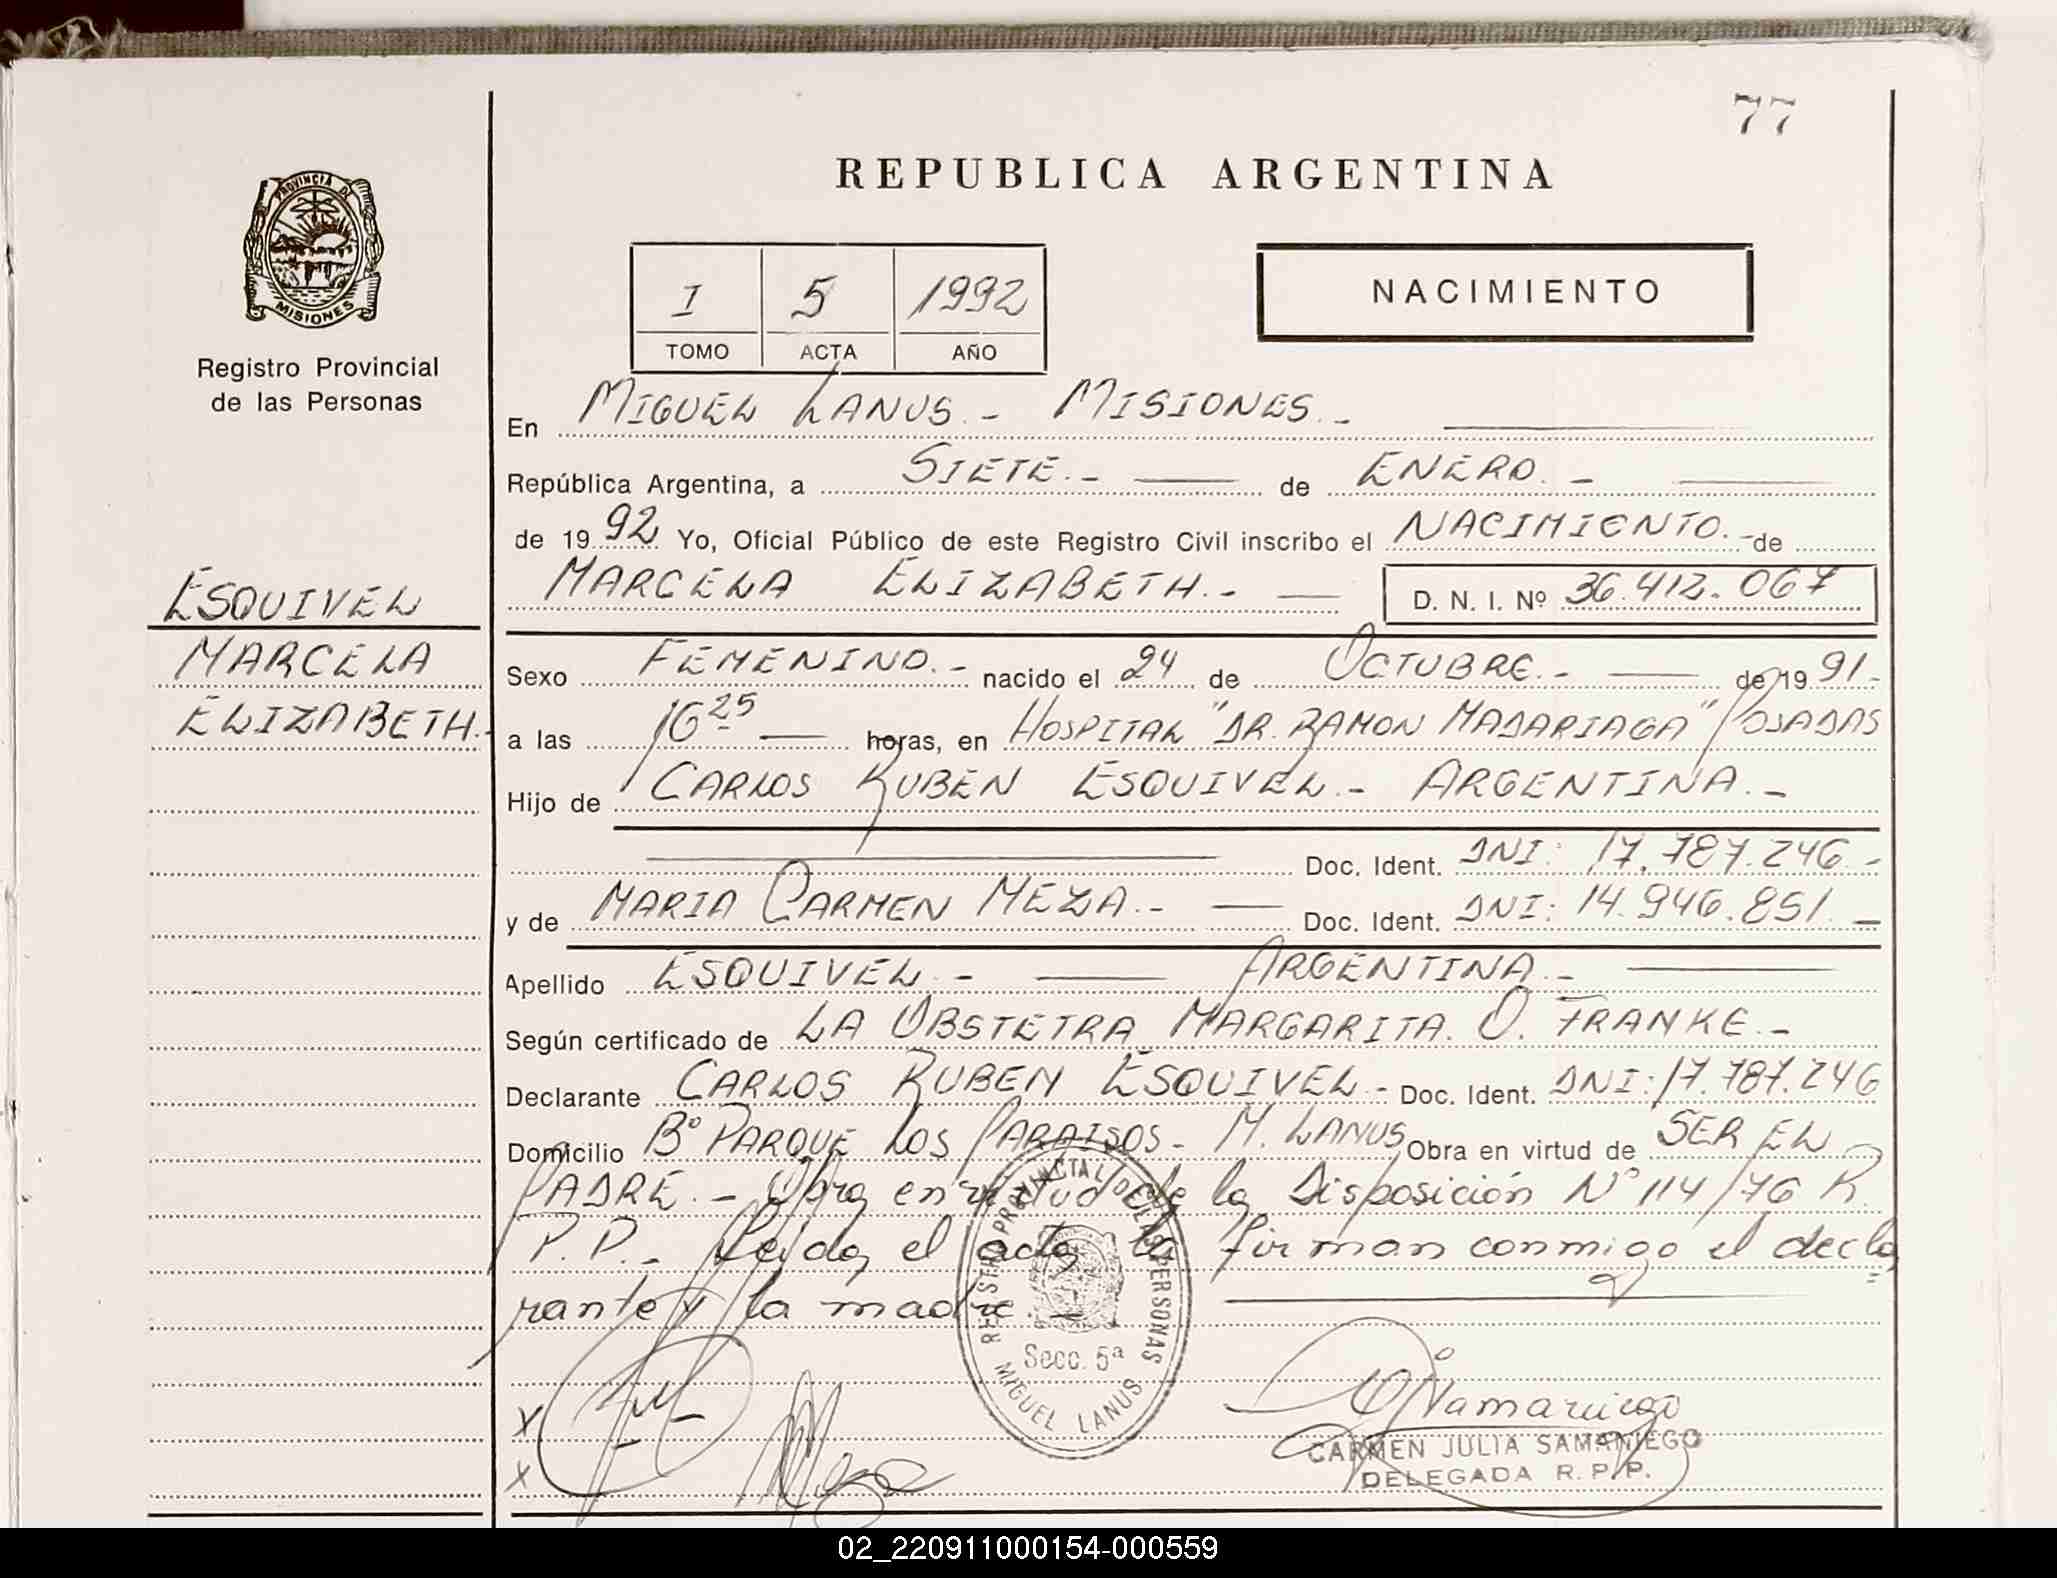 77
REPUBLICA ARGENTINA
PROVINCIA DE
MISIONES
Registro Provincial
de las Personas
I 5 1992
TOMO ACTA AÑO
NACIMIENTO
En MIGUEL LANUS.- MISIONES.-
República Argentina, a SIETE.- de ENERO.-
de 1992 Yo, Oficial Público de este Registro Civil inscribo el NACIMIENTO.- de
MARCELA ELIZABETH.- D. N. I. Nº 36.412.067
ESQUIVEL
MARCELA
ELIZABETH.-
Sexo FEMENINO.- nacido el 24 de OCTUBRE.- de 1991.-
a las 16 25 horas, en HOSPITAL "DR. RAMON MADARIAGA" POSADAS
Hijo de CARLOS RUBEN ESQUIVEL.- ARGENTINA.-
Doc. Ident. DNI: 17.787.246.-
y de MARIA CARMEN MEZA.- Doc. Ident. DNI: 14.946.851.-
Apellido ESQUIVEL.- ARGENTINA.-
Según certificado de LA OBSTETRA MARGARITA. O. FRANKE.-
Declarante CARLOS RUBEN ESQUIVEL.- Doc. Ident. DNI: 17.787.246
Domicilio Bº PARQUE LOS PARAISOS- M. LANUS Obra en virtud de SER EL
PADRE.- Obra en virtud de la Disposición Nº 114/76 R.
P.P.- Leida el acta, la firman conmigo el decla
rante y la madre.-
REGISTRO PROVINCIAL DE LAS PERSONAS
Secc. 5ª
MIGUEL LANUS
X
X
CARMEN JULIA SAMANIEGO
DELEGADA R.P.P.
02_220911000154-000559